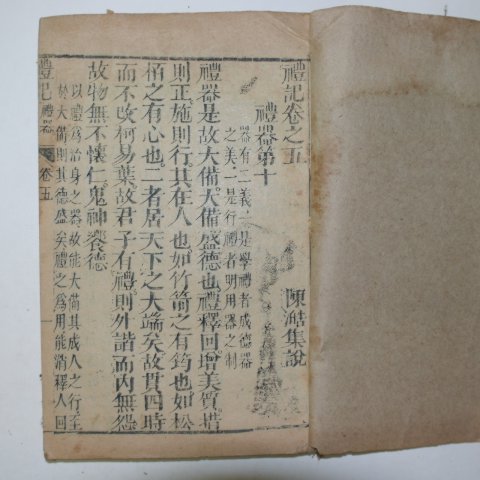 禮記卷之五
陳澔集說
禮器第十
器有二義一是學禮者成德器
之美一是行禮者明用器之制
禮器是故大備大備盛德也禮釋回增美質措
則正施則行其在人也如竹箭之有筠也如松
栢之有心也二者居天下之大端矣故貫四時
而不改柯易葉故君子有禮則外諧而內無怨
故物無不懷仁鬼神饗德
以禮爲治身之器故能大備其成人之行至
於大備則其德盛矣禮之爲用能消釋人回
禮記 禮器 卷五 一